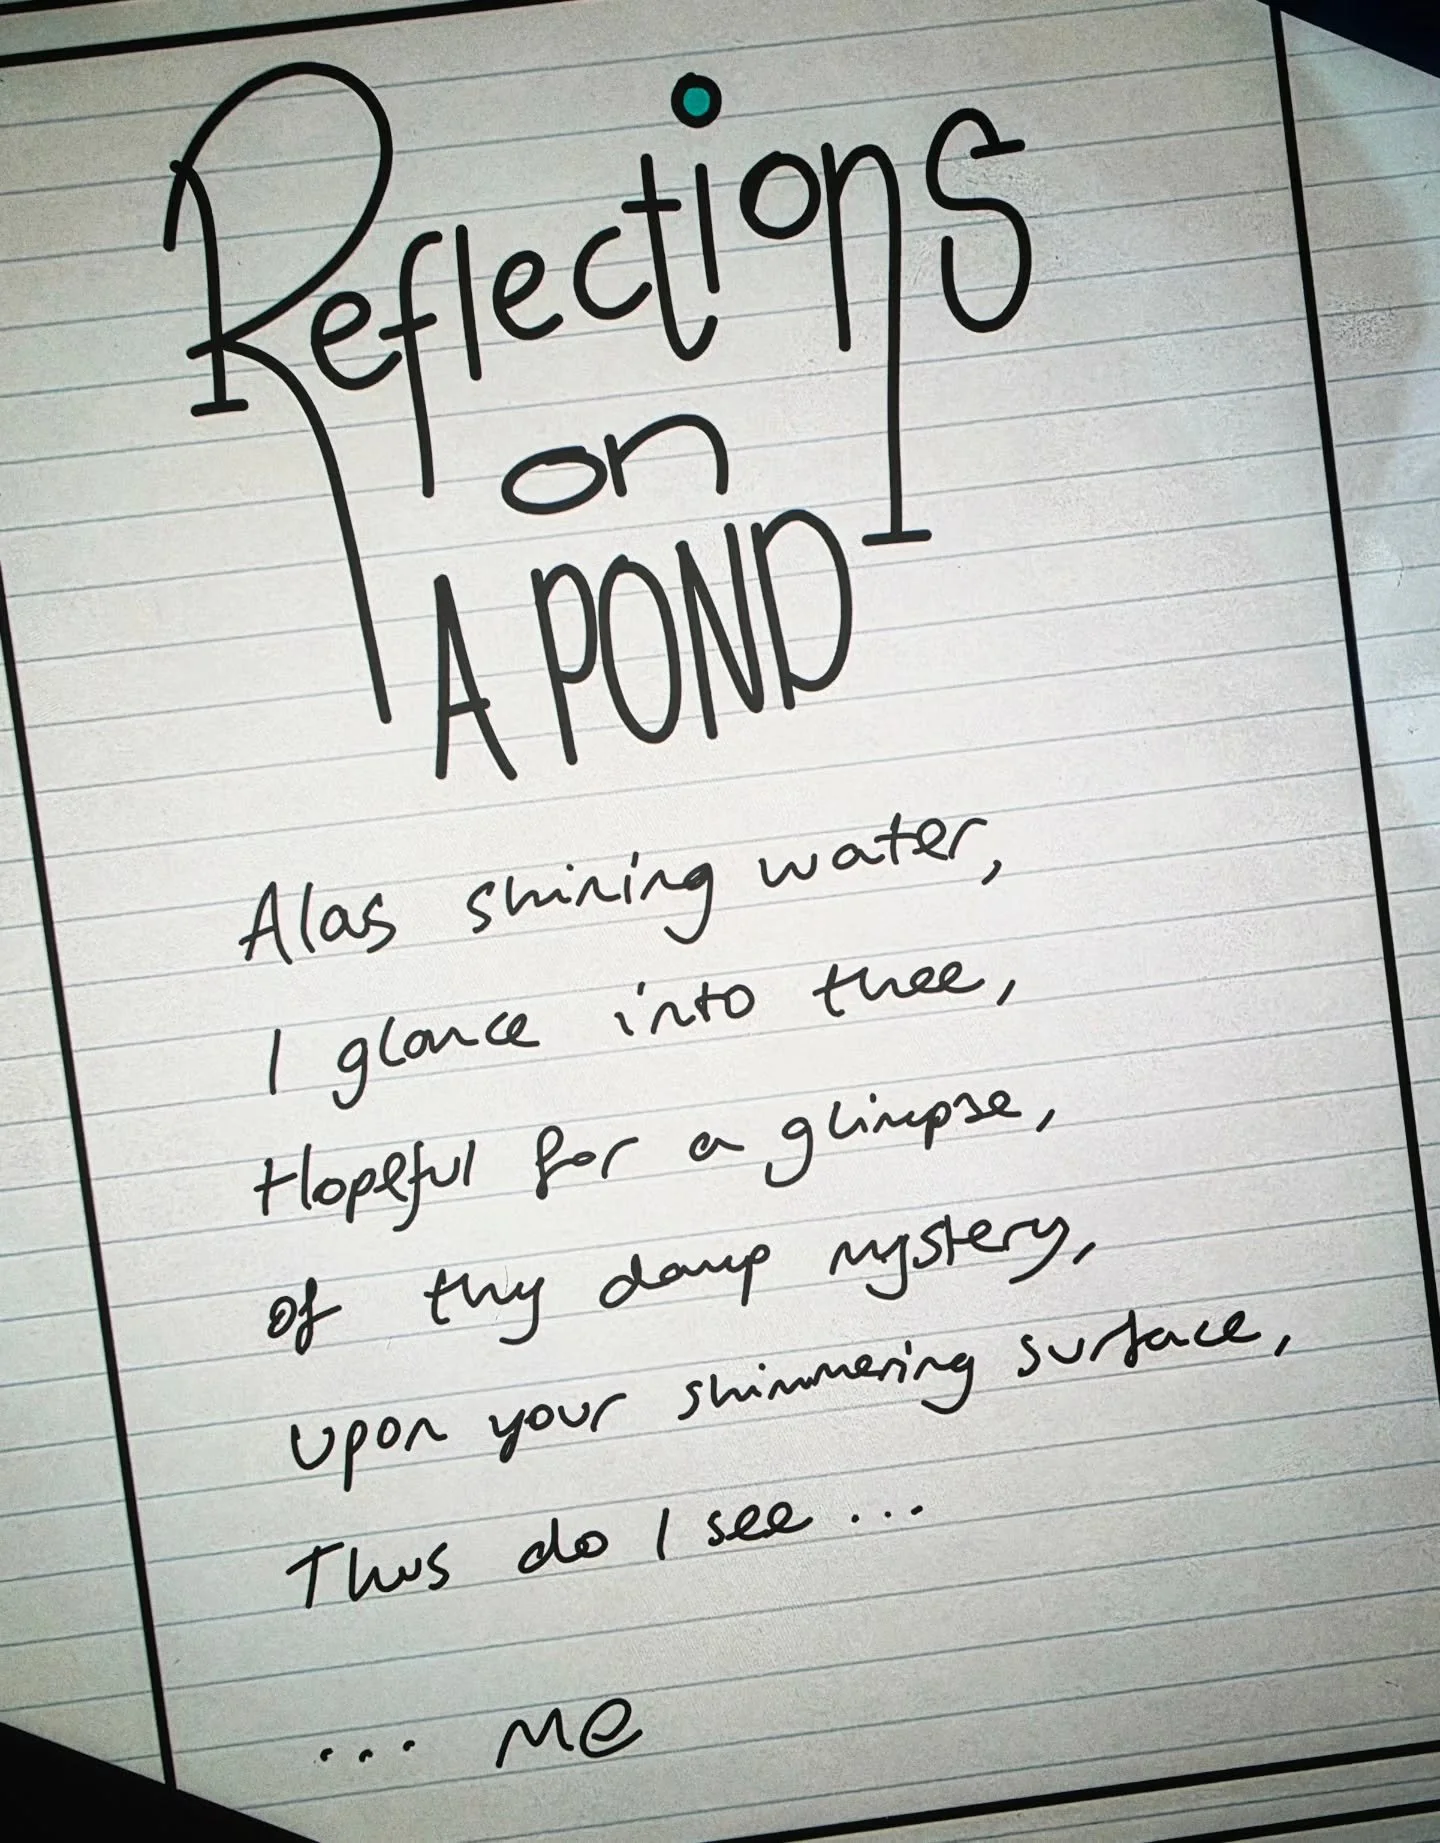 Reflections
on
A POND
Alas shining water,
I glance into thee,
Hopeful for a glimpse,
of thy damp mystery,
upon your shimmering surface,
Thus do I see...
... Me